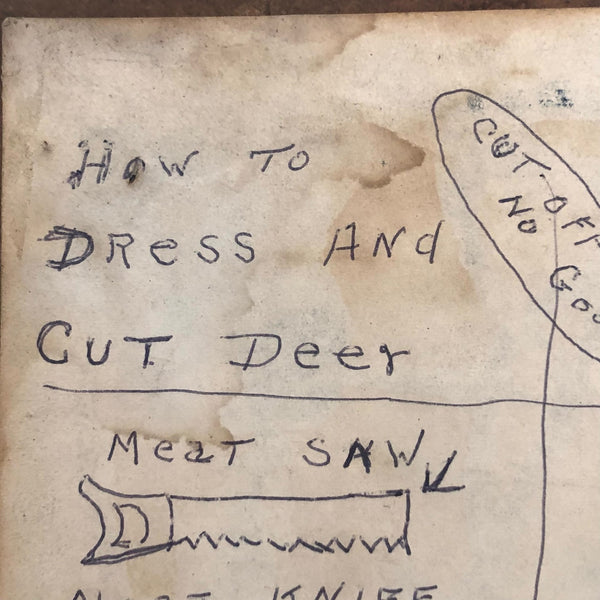 How To
Dress And
Cut Deer
Meat Saw
KNIFE
CUT OFF
NO GOO